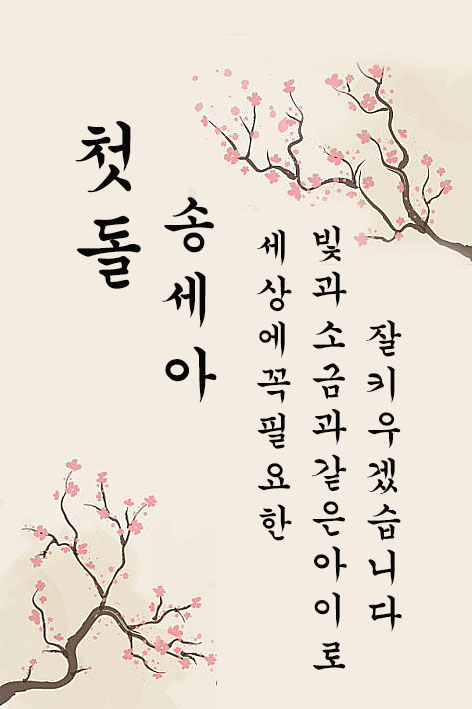 첫돌
송세아
세상에꼭필요한
빛과소금과같은아이로
잘키우겠습니다